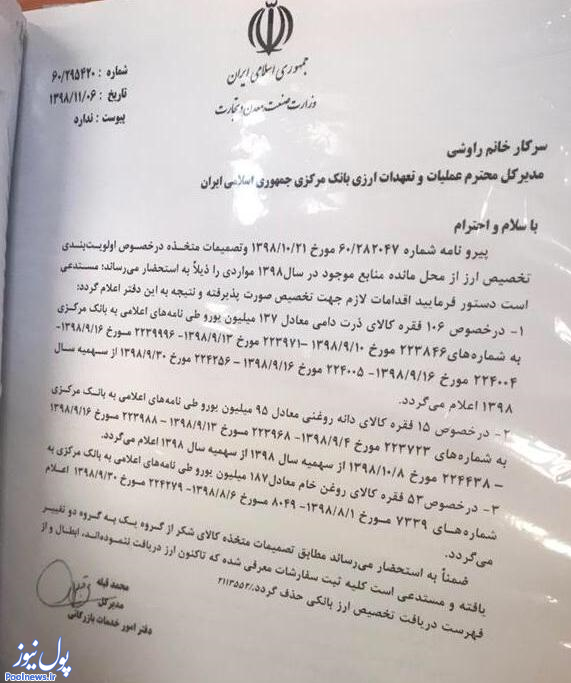 جمهوری اسلامی ایران
وزارت صنعت، معدن و تجارت
شماره : ۶۰/۲۹۵۴۲۰
تاریخ : ۱۳۹۸/۱۱/۰۶
پیوست : ندارد
سرکار خانم راوشی
مدیرکل محترم عملیات و تعهدات ارزی بانک مرکزی جمهوری اسلامی ایران
با سلام و احترام
پیرو نامه شماره ۶۰/۲۸۲۰۴۷ مورخ ۱۳۹۸/۱۰/۲۱ وتصمیمات متخذه درخصوص اولویت‌بندی
تخصیص ارز از محل مانده منابع موجود در سال۱۳۹۸ مواردی را ذیلاً به استحضار می‌رساند؛ مستدعی
است دستور فرمایید اقدامات لازم جهت تخصیص صورت پذیرفته و نتیجه به این دفتر اعلام گردد:
۱- درخصوص ۱۰۶ فقره کالای ذرت دامی معادل ۱۳۷ میلیون یورو طی نامه‌های اعلامی به بانک مرکزی
به شماره‌های۲۲۳۸۴۶ مورخ ۱۳۹۸/۹/۱۰ -۲۲۳۹۷۱ مورخ ۱۳۹۸/۹/۱۳- ۲۲۳۹۹۹۶ مورخ ۱۳۹۸/۹/۱۶-
۲۲۴۰۰۴ مورخ ۱۳۹۸/۹/۱۶- ۲۲۴۰۰۵ مورخ ۱۳۹۸/۹/۱۶ - ۲۲۴۲۵۶ مورخ ۱۳۹۸/۹/۳۰ از سهمیه سال
۱۳۹۸ اعلام می‌گردد.
۲- درخصوص ۱۵ فقره کالای دانه روغنی معادل ۹۵ میلیون یورو طی نامه‌های اعلامی به بانک مرکزی
به شماره‌های ۲۲۳۷۲۳ مورخ ۱۳۹۸/۹/۴- ۲۲۳۹۶۸ مورخ ۱۳۹۸/۹/۱۳ - ۲۲۳۹۸۸ مورخ ۱۳۹۸/۹/۱۶
- ۲۲۴۴۳۸ مورخ ۱۳۹۸/۱۰/۸ از سهمیه سال ۱۳۹۸ از سهمیه سال ۱۳۹۸ اعلام می‌گردد.
۳- درخصوص۵۳ فقره کالای روغن خام معادل۱۸۷ میلیون یورو طی نامه‌های اعلامی به بانک مرکزی به
شماره‌های ۷۳۳۹ مورخ ۱۳۹۸/۸/۱- ۸۰۴۹ مورخ ۱۳۹۸/۸/۶- ۲۲۴۲۷۹ مورخ ۱۳۹۸/۹/۳۰ اعلام
می‌گردد.
ضمناً به استحضار می‌رساند مطابق تصمیمات متخذه کالای شکر از گروه یک به گروه دو تغییر
یافته و مستدعی است کلیه ثبت سفارشات معرفی شده که تاکنون ارز دریافت ننموده‌اند، ابطال و از
فهرست دریافت تخصیص ارز بانکی حذف گردد./۲۱۱۳۵۵۲
محمد قبله
مدیرکل
دفتر امور خدمات بازرگانی
پول نیوز
Poolnews.ir